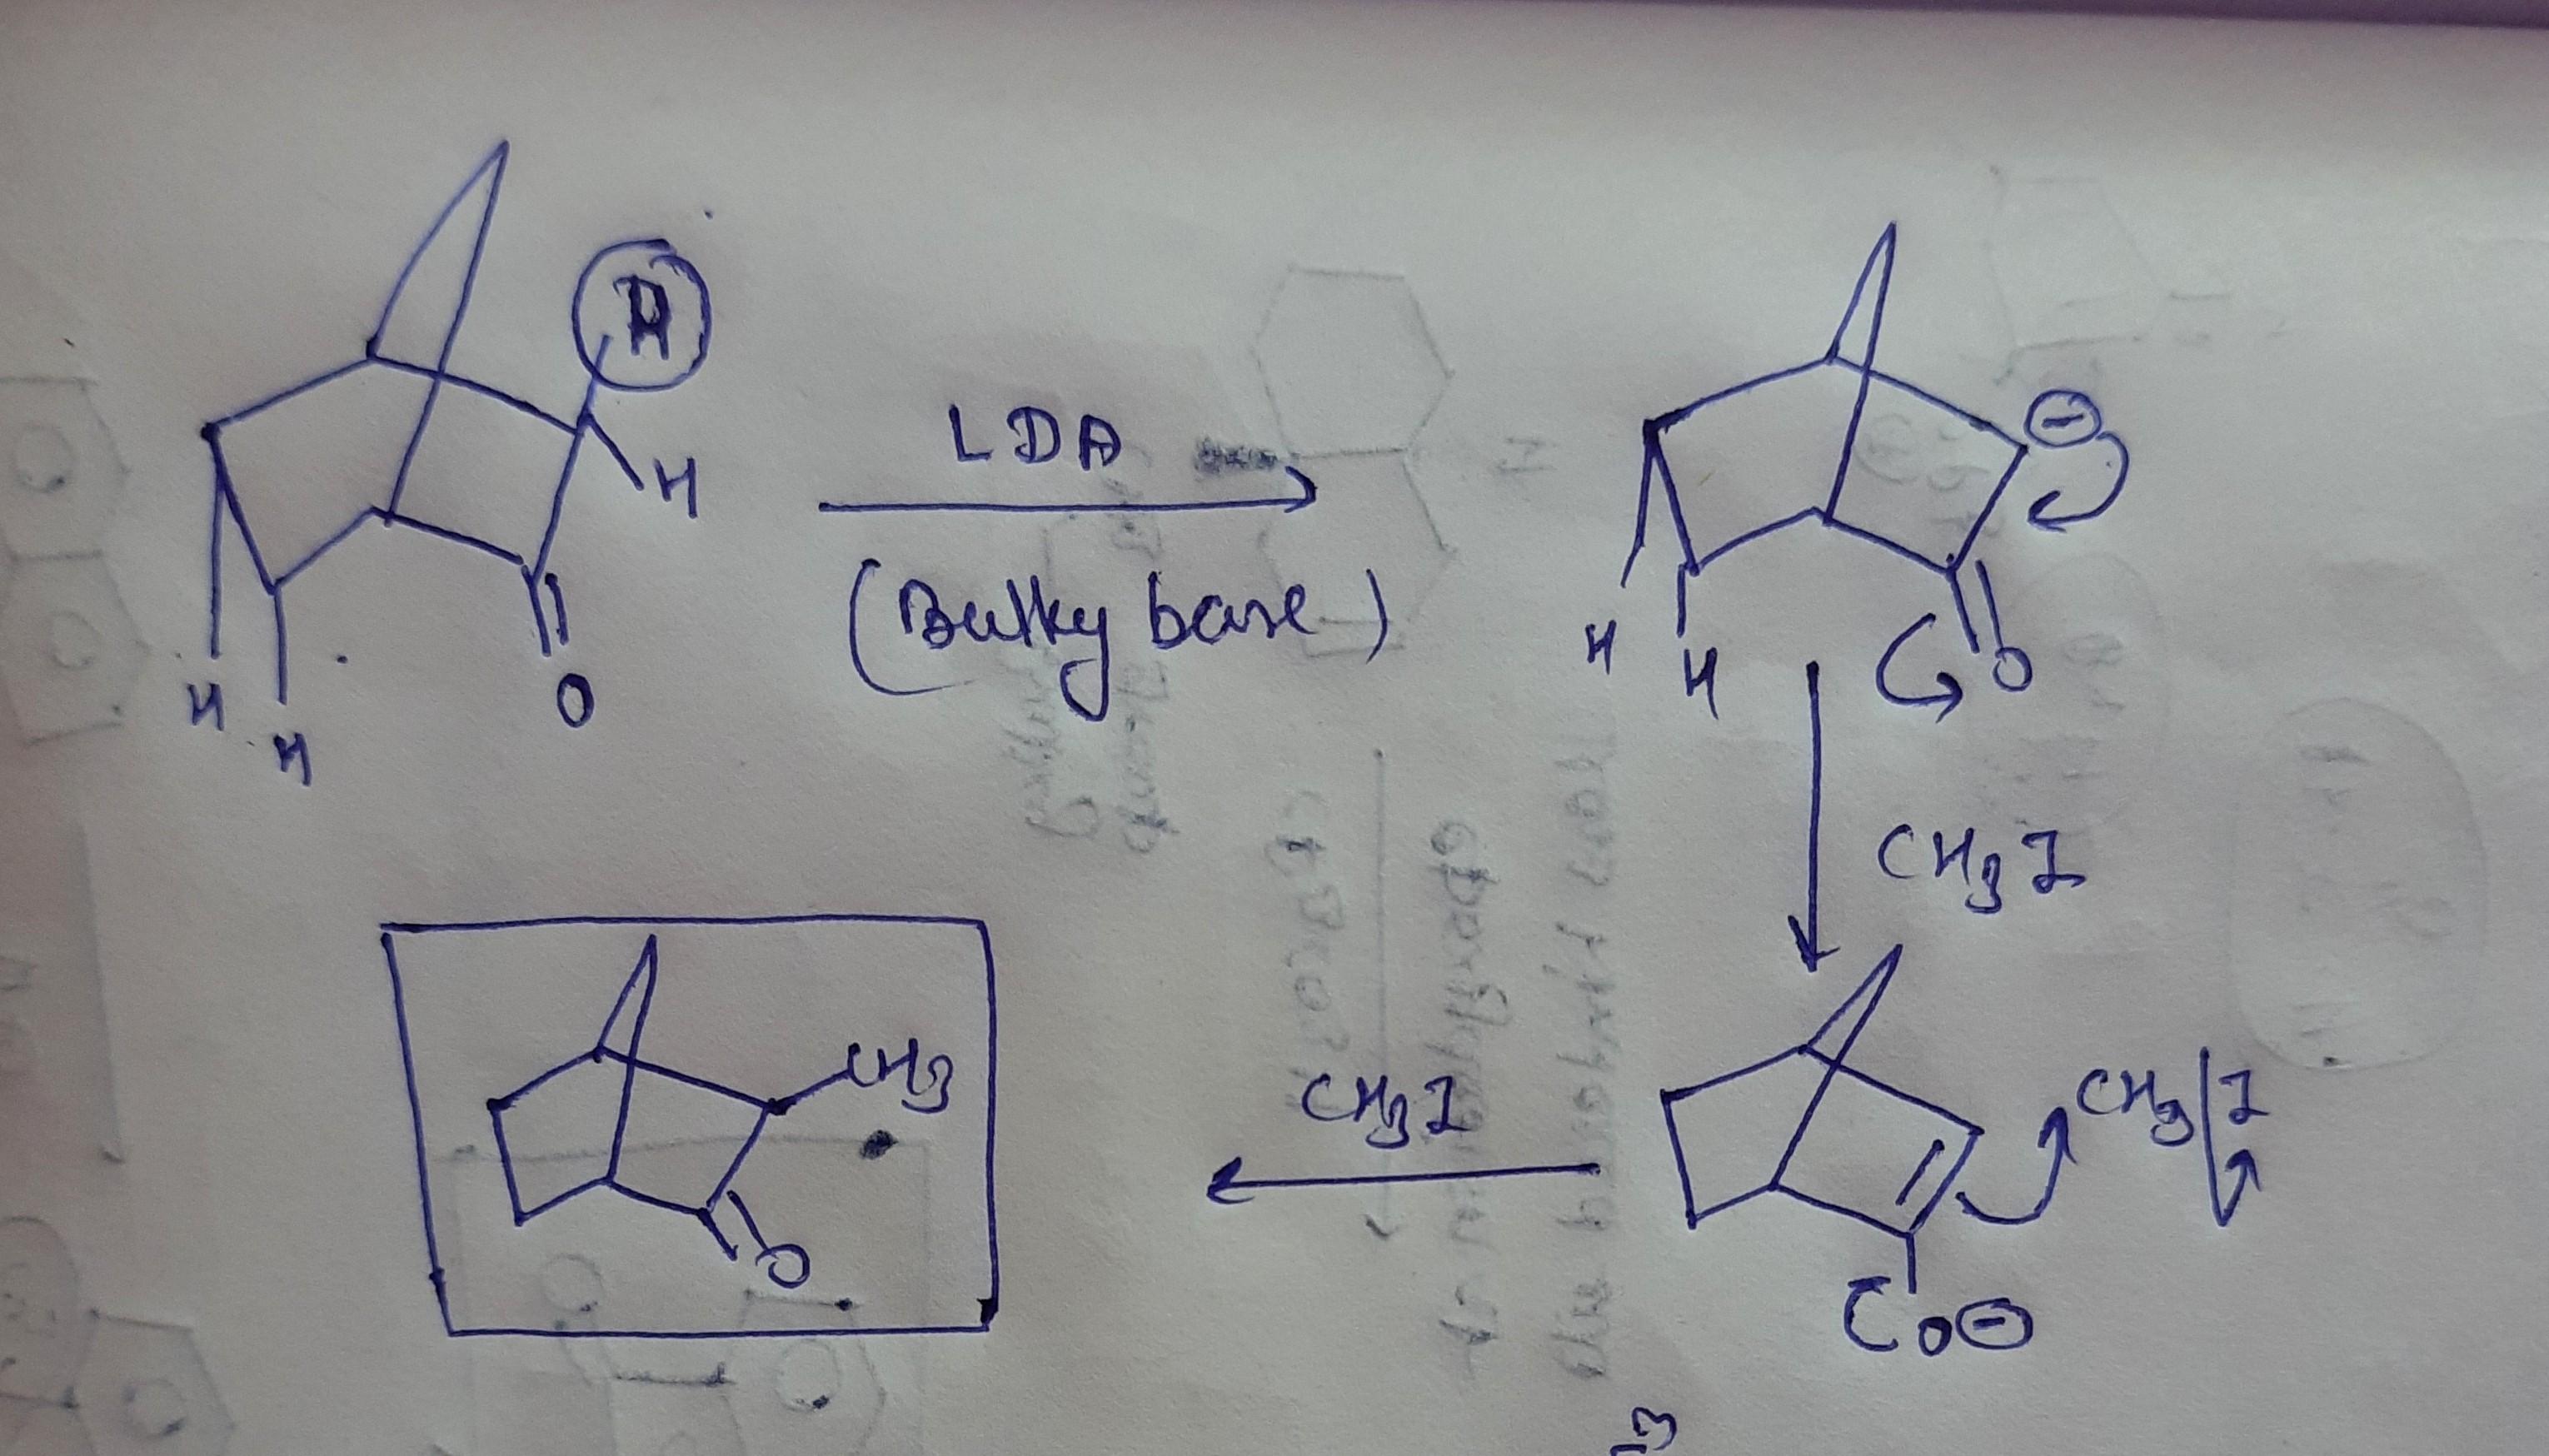 H
H
H
H
O
LDA
(Bulky base)
⊖
H
H
O
CH3I
CH3
O
CH3I
CH3 I
O⊖